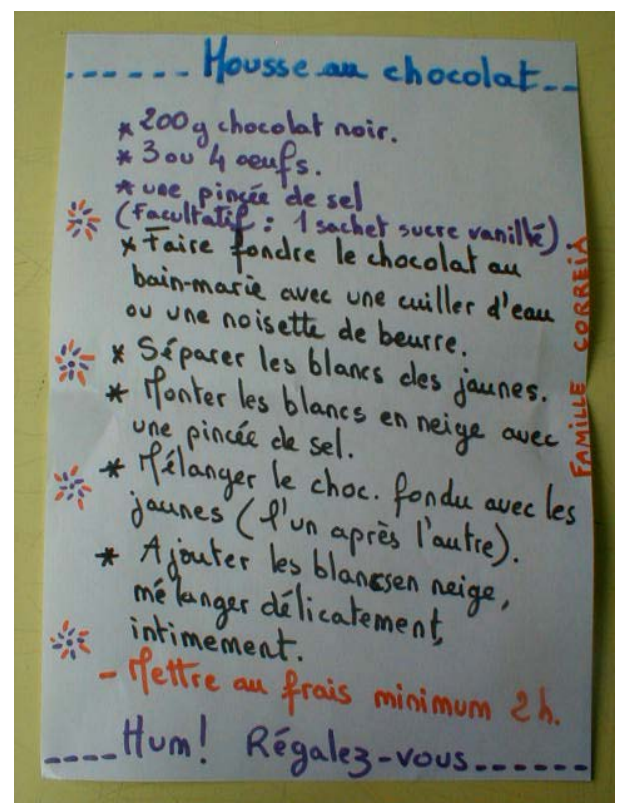 ------ Mousse au chocolat--
* 200 g chocolat noir.
* 3 ou 4 oeufs.
* une pincée de sel
(Facultatif : 1 sachet sucre vanillé)
* Faire fondre le chocolat au
bain-marie avec une cuiller d'eau
ou une noisette de beurre.
* Séparer les blancs des jaunes.
* Monter les blancs en neige avec
une pincée de sel.
* Mélanger le choc. fondu avec les
jaunes (l'un après l'autre).
* Ajouter les blancs en neige,
mélanger délicatement,
intimement.
- Mettre au frais minimum 2 h.
----Hum! Régalez-vous------
FAMILLE CORREIA